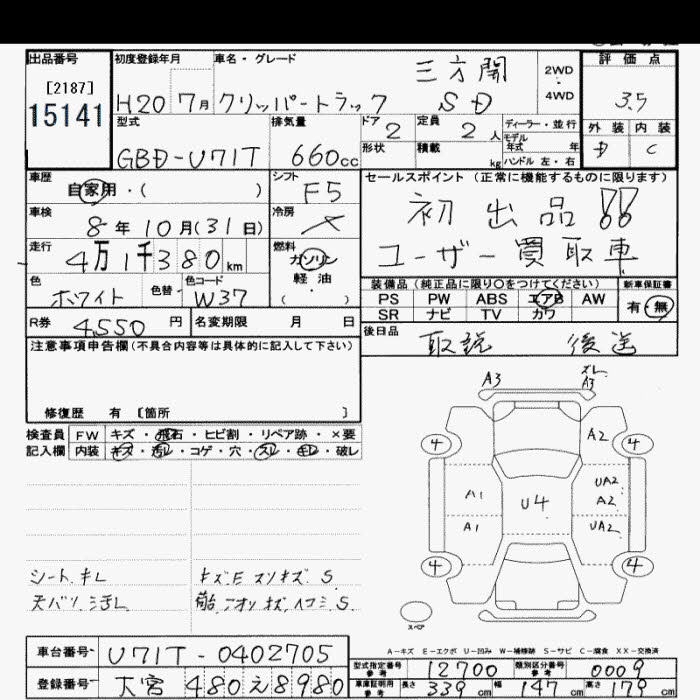 出品番号
[2187]
15141
初度登録年月
H20 7月
車名・グレード
クリッパートラック
三方開
SD
2WD
4WD
評価点
3.5
外装 内装
D C
型式
GBD-U71T
排気量
660cc
ドア
2
定員
2人
形状
積載
kg
ディーラー・並行
モデル
年式 年
ハンドル 左・右
車歴
自家用・( )
シフト
F5
車検
8年10月(31日)
冷房
走行
4万1千380km
燃料
ガソリン
軽油
( ・ )
色
ホワイト
色替
色コード
W37
R券
4,550円
名変期限 月 日
セールスポイント(正常に機能するものに限ります)
初出品!!
ユーザー買取車
装備品(純正品に限り○をつけてください)
PS PW ABS エアB AW
SR ナビ TV カワ
新車保証書
有・無
後日品
取説 後送
注意事項申告欄(不具合内容等は具体的に記入して下さい)
修復歴 有 [箇所 ]
検査員
記入欄
FW キズ・飛石・ヒビ割・リペア跡・×要
内装 キズ・汚レ・コゲ・穴・スレ・キレ・破レ
シート キレ
キズ.E スリキズ.S
A3
ズレ.
A3
4
4
A2
A1
U4
UA2
A2
A1
UA2
4
4
スペア
A-キズ E-エクボ U-凹み W-補修跡 S-サビ C-腐食 XX-交換済
車台番号
U71T-0402705
登録番号
大宮480え8980
型式指定番号
参考
12700
類別区分番号
参考
0009
車庫証明用
参考
長さ 339cm 幅 147cm 高さ 179cm